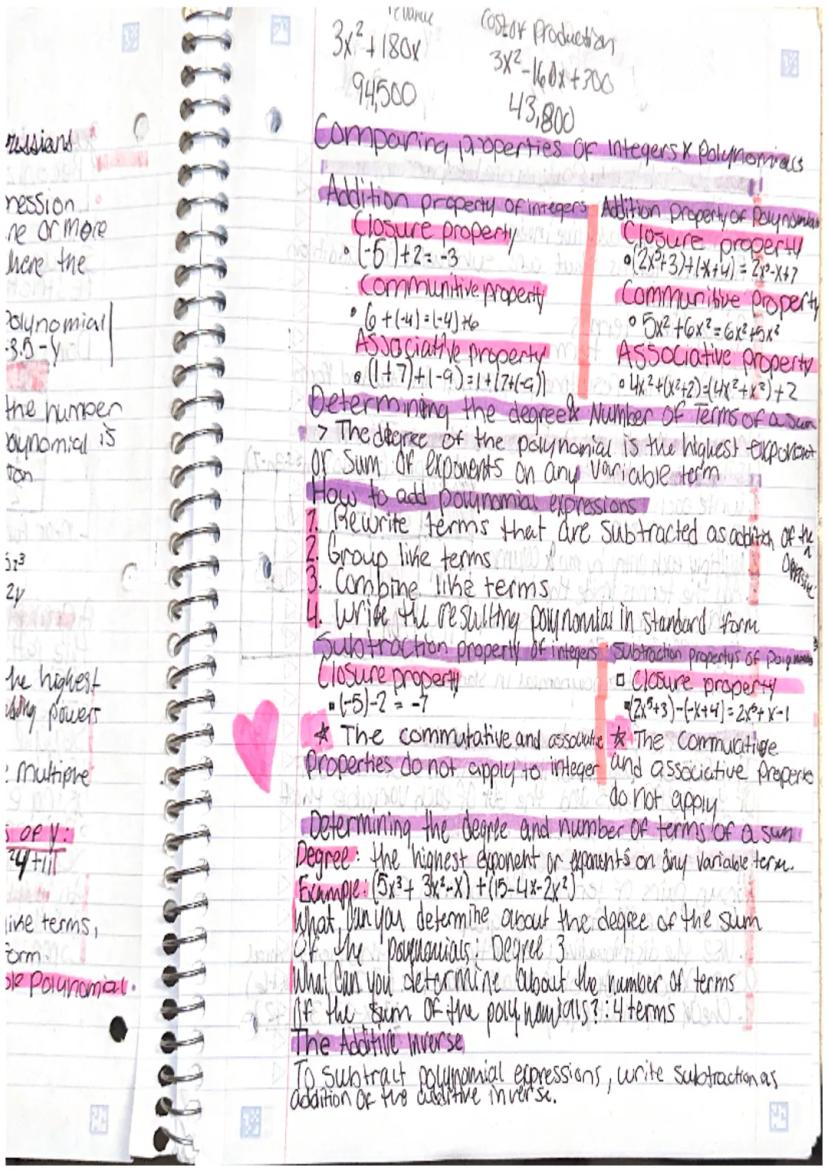 russians
ression
ne or more
where the
Polynomial
-3.5-y
the number
polynomial is
ton
5z³
2y
he highest
powers
multiple
s of y:
like terms,
form
ole Polynomial.
Cost of Production
3x²+180x
3x²-160x+300
94,500
43,800
Comparing properties of integers & Polynomials
Addition property of integers
Closure property
• (-5)+2=-3
Communitive property
• 6+(-4)=(-4)+6
Associative property
• (1+7)+(-9)=1+(7+(-9))
Addition property of Polynomials
Closure property
• (2x⁵+3)+(-x+4)=2x⁵-x+7
Communitive Property
• 5x²+6x²=6x²+5x²
Associative property
• 4x²+(x²+2)=(4x²+x²)+2
Determining the degree & Number of Terms of a sum
> The degree of the polynomial is the highest exponent
or sum of exponents on any variable term
How to add polynomial expressions
1. Rewrite terms that are subtracted as addition of the opposite
2. Group like terms
3. Combine like terms
4. Write the resulting polynomial in standard form
Subtraction property of integers
Closure property
• (-5)-2=-7
☆ The commutative and associative
Properties do not apply to integer
Subtraction Propertys of polynomials
Closure property
• (2x⁵+3)-(-x+4)=2x⁵+x-1
☆ The commuative
and associative Properties
do not apply
Determining the degree and number of terms of a sum
Degree: the highest exponent or exponents on any variable term.
Example: (5x³+3x²-x)+(15-4x-2x²)
What can you determine about the degree of the sum
of the polynomials: Degree 3
What can you determine about the number of terms
of the sum of the polynomials?: 4 terms
The Additive Inverse
To subtract polynomial expressions, write subtraction as
addition of the additive inverse.